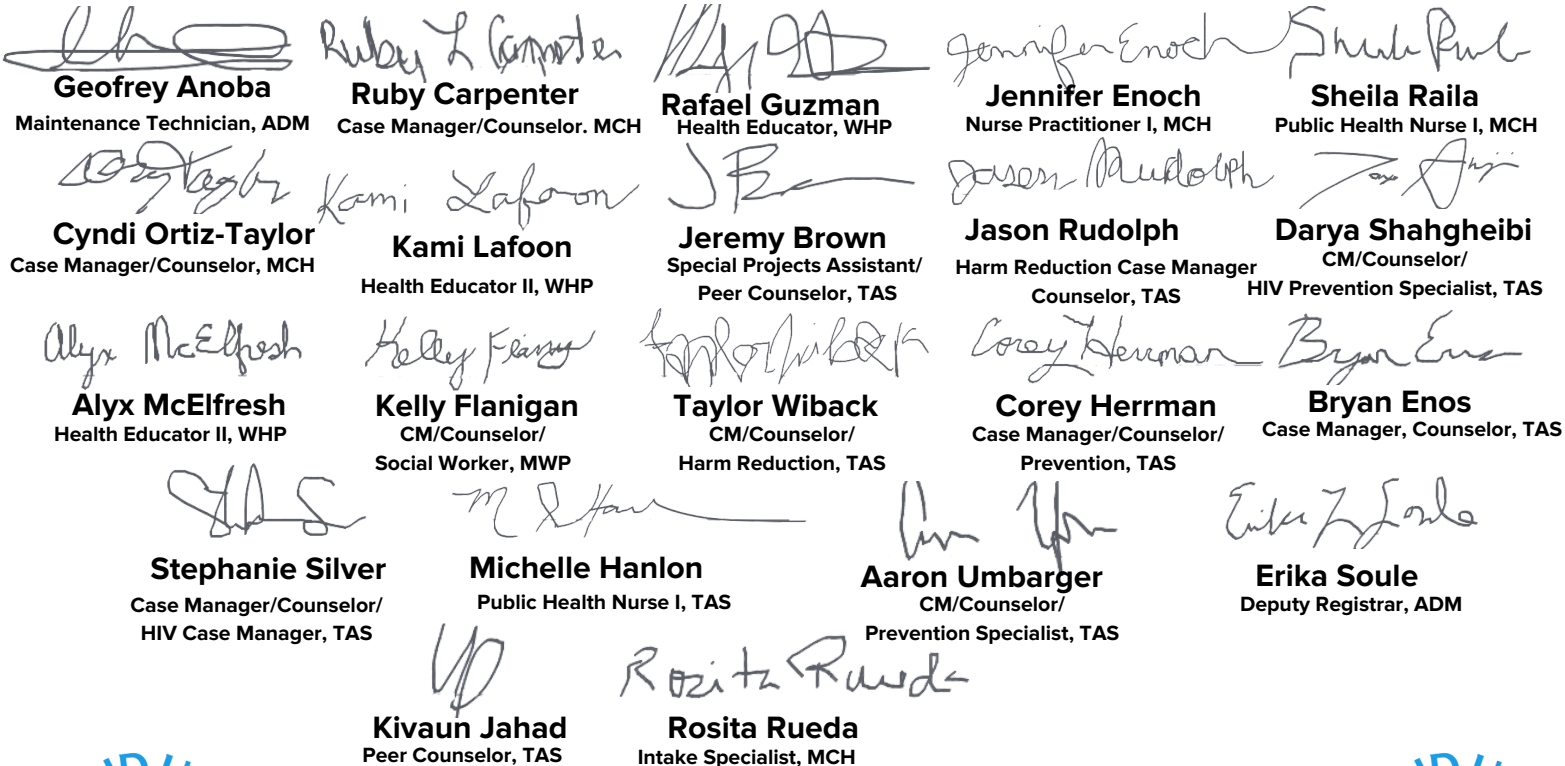 Ruby L Carpenter
Jennifer Enoch
Geofrey Anoba
Maintenance Technician, ADM
Ruby Carpenter
Case Manager/Counselor. MCH
Rafael Guzman
Health Educator, WHP
Jennifer Enoch
Nurse Practitioner I, MCH
Sheila Raila
Public Health Nurse I, MCH
Kami Lafoon
Jason Rudolph
Cyndi Ortiz-Taylor
Case Manager/Counselor, MCH
Kami Lafoon
Health Educator II, WHP
Jeremy Brown
Special Projects Assistant/
Peer Counselor, TAS
Jason Rudolph
Harm Reduction Case Manager
Counselor, TAS
Darya Shahgheibi
CM/Counselor/
HIV Prevention Specialist, TAS
Alyx McElfresh
Corey Herrman
Alyx McElfresh
Health Educator II, WHP
Kelly Flanigan
CM/Counselor/
Social Worker, MWP
Taylor Wiback
CM/Counselor/
Harm Reduction, TAS
Corey Herrman
Case Manager/Counselor/
Prevention, TAS
Bryan Enos
Case Manager, Counselor, TAS
Erika L Soule
Stephanie Silver
Case Manager/Counselor/
HIV Case Manager, TAS
Michelle Hanlon
Public Health Nurse I, TAS
Aaron Umbarger
CM/Counselor/
Prevention Specialist, TAS
Erika Soule
Deputy Registrar, ADM
Rozita Rueda
Kivaun Jahad
Peer Counselor, TAS
Rosita Rueda
Intake Specialist, MCH